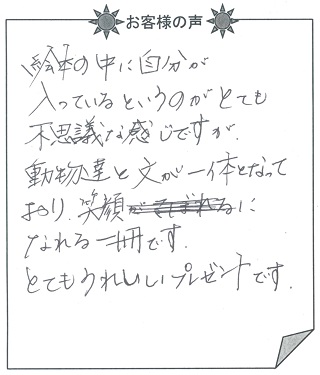 お客様の声
絵本の中に自分が
入っているというのがとても
不思議な感じですが、
動物達と文が一体となって
おり、笑顔に
なれる一冊です。
とてもうれしいプレゼントです。